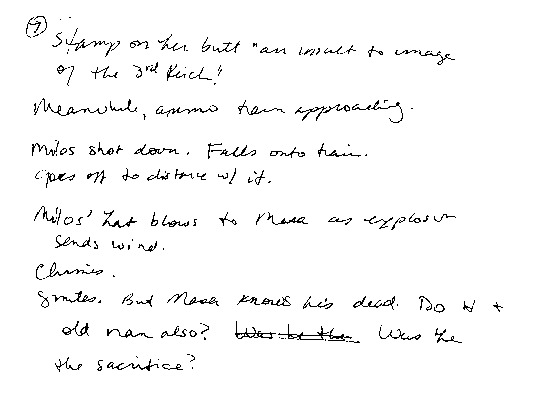 7
Stamp on her butt "an insult to image
of the 3rd Reich!"
Meanwhile, ammo train approaching.
Milos shot down. Falls onto train.
Goes off to distance w/ it.
Milos' hat blows to Masa as explosion
sends wind.
Chimes.
Smiles. But Masa knows his dead. Do H +
old man also? Was he the
the sacrifice?